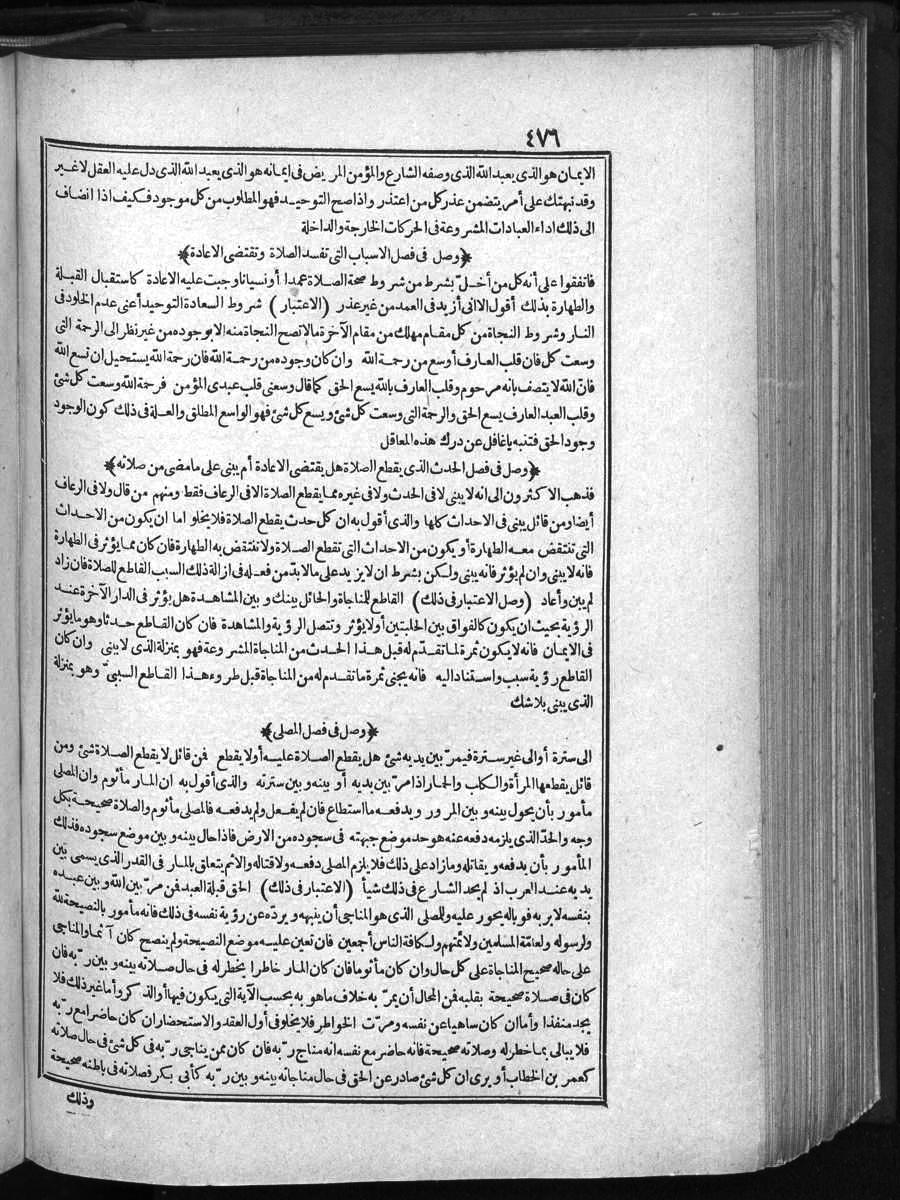 ٤٧٦
الايمان هو الذى يعبد الله الذى وصفه الشارع والمؤمن المريض فى ايمانه هو الذى يعبد الله الذى دل عليه العقل لا غير
وقد نبهتك على أمر يتضمن عذر كل من اعتذر واذا صح التوحيد فهو المطلوب من كل موجود فكيف اذا انضاف
الى ذلك اداء العبادات المشروعة فى الحركات الخارجة والداخلة
﴿وصل فى فصل الاسباب التى تفسد الصلاة وتقتضى الاعادة﴾
فاتفقوا على أنه كل من أخلّ بشرط من شروط صحة الصلاة عمدا أو نسيانا وجبت عليه الاعادة كاستقبال القبلة
والطهارة بذلك أقول الا انى أزيد فى العمد من غير عذر (الاعتبار) شروط السعادة التوحيد أعنى عدم الخلود فى
النار وشروط النجاة من كل مقام مهلك من مقام الآخرة مالا تصح النجاة منه الا بوجوده من غير نظر الى الرحمة التى
وسعت كل فان قلب العارف أوسع من رحمة الله وان كان وجوده من رحمة الله فان رحمة الله يستحيل ان تسع الله
فانّ الله لا يتصف بانه مرحوم وقلب العارف بالله يسع الحق كما قال وسعنى قلب عبدى المؤمن فرحمة الله وسعت كل شئ
وقلب العبد العارف يسع الحق والرحمة التى وسعت كل شئ ويسع كل شئ فهو الواسع المطلق والعلة فى ذلك كون الوجود
وجود الحق فتنبه ياغافل عن درك هذه المعاقل
﴿وصل فى فصل الحدث الذى يقطع الصلاة هل يقتضى الاعادة أم يبنى على مامضى من صلاته﴾
فذهب الاكثرون الى انه لا يبنى لا فى الحدث ولا فى غيره مما يقطع الصلاة الا فى الرعاف فقط ومنهم من قال ولا فى الرعاف
أيضا ومن قائل يبنى فى الاحداث كلها والذى أقول به ان كل حدث يقطع الصلاة فلا يخلو اما ان يكون من الاحداث
التى تنتقض معه الطهارة أو يكون من الاحداث التى تقطع الصلاة ولا تنتقض به الطهارة فان كان مما يؤثر فى الطهارة
فانه لا يبنى وان لم يؤثر فانه يبنى ولكن بشرط ان لا يزيد على مالا بدّ من فعله فى ازالة ذلك السبب القاطع للصلاة فان زاد
لم يبن وأعاد (وصل الاعتبار فى ذلك) القاطع للمناجاة والحائل بينك وبين المشاهدة هل يؤثر فى الدار الآخرة عند
الرؤية بحيث ان يكون كالفواق بين الحلبتين أو لا يؤثر وتتصل الرؤية والمشاهدة فان كان القاطع حدثا وهو ما يؤثر
فى الايمان فانه لا يكون ثمرة لما تقدّم له قبل هذا الحدث من المناجاة المشروعة فهو بمنزلة الذى لا يبنى وان كان
القاطع رؤية سبب واستنادا اليه فانه يجنى ثمرة ما تقدم له من المناجاة قبل طروء هذا القاطع السببىّ وهو بمنزلة
الذى يبنى بلاشك
﴿وصل فى فصل المصلى﴾
الى سترة أو الى غير سترة فيمرّ بين يديه شئ هل يقطع الصلاة عليه أو لا يقطع فمن قائل لا يقطع الصلاة شئ ومن
قائل يقطعها المرأة والكلب والحمار اذا مرّ بين يديه أو بينه وبين سترته والذى أقول به ان المار مأثوم وان المصلى
مأمور بأن يحول بينه وبين المرور ويدفعه ما استطاع فان لم يفعل ولم يدفعه فالمصلى مأثوم والصلاة صحيحة بكل
وجه والحدّ الذى يلزمه دفعه عنه هو حد موضع جبهته فى سجوده من الارض فاذا حال بينه وبين موضع سجوده فذلك
المأمور بأن يدفعه ويقاتله وما زاد على ذلك فلا يلزم المصلى دفعه ولا قتاله والاثم يتعلق بالمار فى القدر الذى يسمى بين
يديه عند العرب اذ لم يحد الشارع فى ذلك شيأ (الاعتبار فى ذلك) الحق قبلة العبد فمن مرّ بين الله وبين عبده
بنفسه لا بربه فوباله يحور عليه وللمصلى الذى هو المناجى أن ينبهه ويردّه عن رؤية نفسه فى ذلك فانه مأمور بالنصيحة لله
ولرسوله ولعامّة المسلمين ولائمتهم ولكافة الناس أجمعين فان تعين عليه موضع النصيحة ولم ينصح كان آثما والمناجى
على حاله صحيح المناجاة على كل حال وان كان مأثوما فان كان المار خاطرا يخطر له فى حال صلاته بينه وبين ربّه فان
كان فى صلاة صحيحة بقلبه فمن المحال أن يمرّ به خلاف ما هو به بحسب الآية التى يكون فيها أو الذكر وأما غير ذلك فلا
يجد منفذا وأما ان كان ساهيا عن نفسه ومرّت الخواطر فلا يخلو فى أول العقد والاستحضار ان كان حاضرا مع ربّه
فلا يبالى بما خطر له وصلاته صحيحة فانه حاضر مع نفسه انه مناج ربّه فان كان ممن يناجى ربّه فى كل شئ فى حال صلاته
كعمر بن الخطاب أو يرى ان كل شئ صادر عن الحق فى حال مناجاته بينه وبين ربّه كأبى بكر فصلاته فى باطنه صحيحة
وذلك